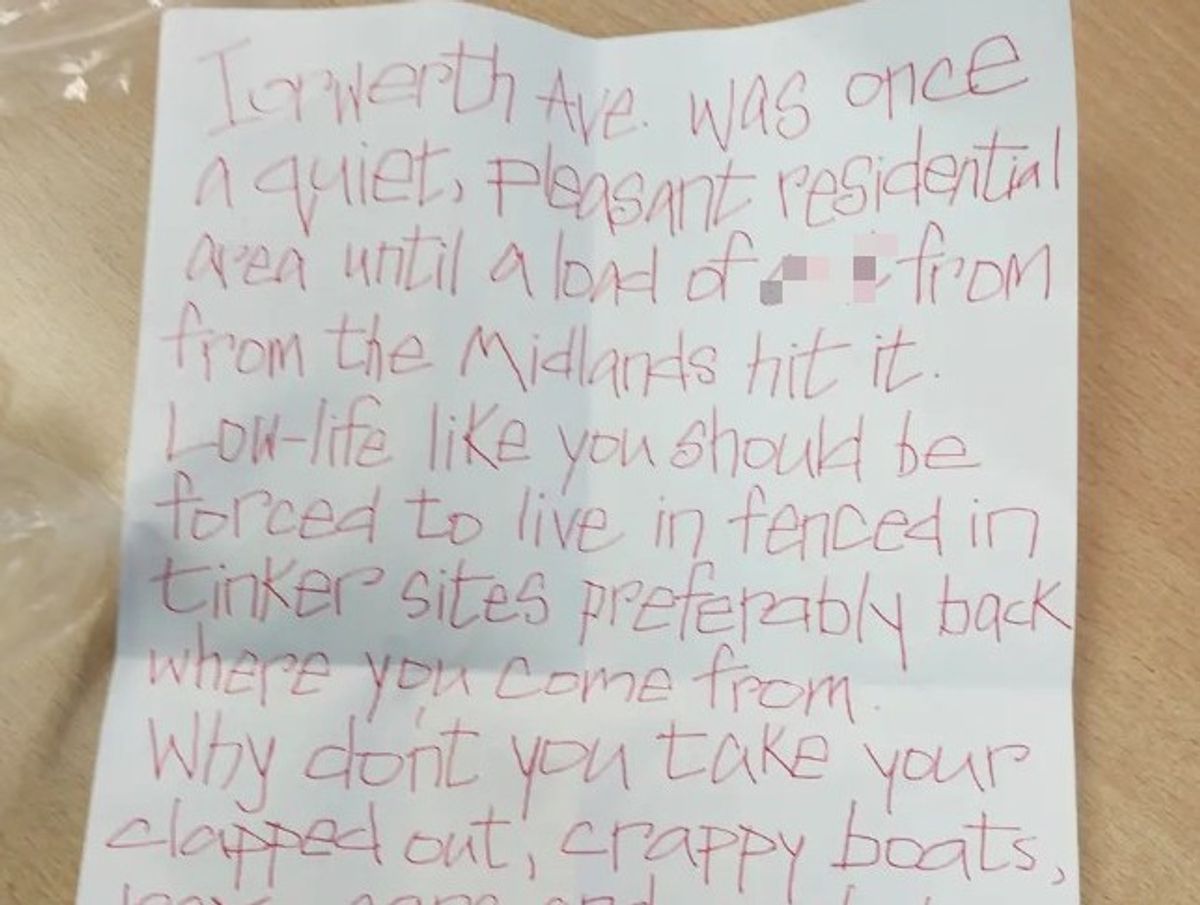 Iorwerth Ave. was once
a quiet, pleasant residential
area until a load of from
from the Midlands hit it.
Low-life like you should be
forced to live in fenced in
tinker sites preferably back
where you come from.
Why don't you take your
clapped out, crappy boats,